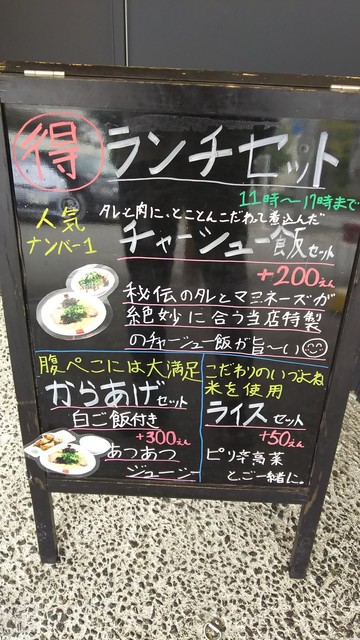 得 ランチセット
11時〜17時まで
人気ナンバー1
タレと肉に、とことんこだわって煮込んだ
チャーシュー飯セット
+200えん
秘伝のタレとマヨネーズが
絶妙に合う当店特製
のチャーシュー飯が旨〜い
腹ぺこには大満足
からあげセット
白ご飯付き
+300えん
あつあつ
ジューシー
こだわりのいづよね
米を使用
ライスセット
+50えん
ピリ辛高菜
とご一緒に。